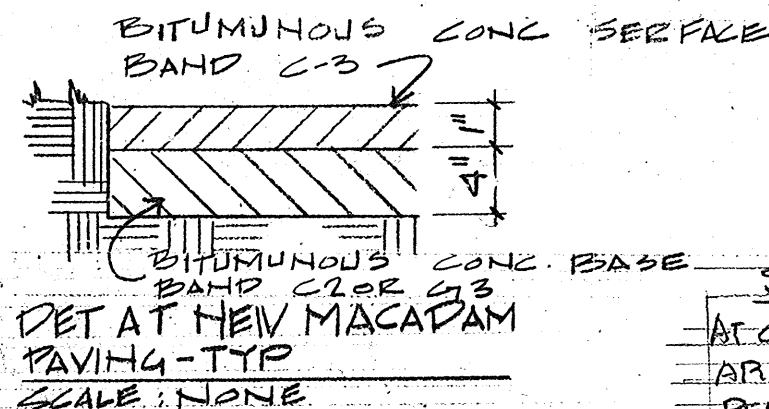 BITUMUNOUS CONC SERFACE
BAND C-3
1"
4"
BITUMUNOUS CONC. BASE
BAND C2 OR C3
DET AT NEW MACADAM
PAVING-TYP
SCALE: NONE
AT
AR